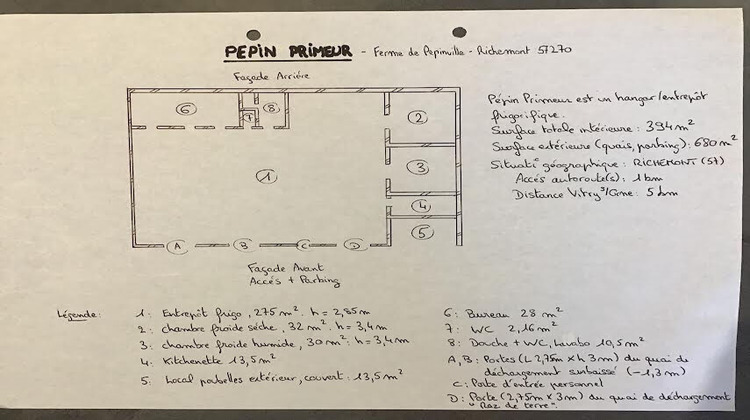 PEPIN PRIMEUR - Ferme de Pépinville - Richemont 57270
Façade Arrière
6
7
8
2
3
1
4
5
A
B
C
D
Façade Avant
Accés + Parking
Pépin Primeur est un hangar/entrepôt
frigorifique.
Surface totale intérieure : 394 m²
Surface extérieure (quais, parking) : 680 m²
Situat° géographique : RICHEMONT (57)
Accés autoroute(s) : 1 km
Distance Vitry s/Orne : 5 km
Légende :
1 : Entrepôt frigo, 275 m². h = 2,85 m
2 : chambre froide sèche, 32 m². h = 3,4 m
3 : chambre froide humide, 30 m² : h = 3,4 m
4 : Kitchenette 13,5 m²
5 : Local poubelles extérieur, couvert : 13,5 m²
6 : Bureau 28 m²
7 : WC 2,16 m²
8 : Douche + WC, Lavabo 10,5 m²
A, B : Portes (L 2,75m x h 3m) du quai de
déchargement surbaissé (-1,3m)
C : Porte d'entrée personnel
D : Porte (2,75m x 3m) du quai de déchargement
"Raz de terre".